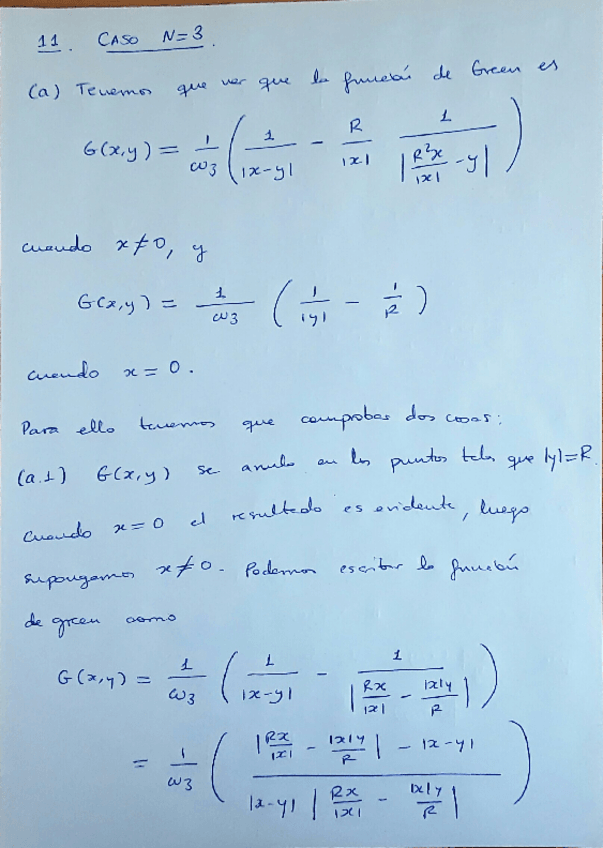 11. CASO N=3.
(a) Tenemos que ver que la función de Green es
G(x,y) = 1/ω3 ( 1/|x-y| - R/|x| 1/|R²x/|x| - y| )
cuando x≠0, y
G(x,y) = 1/ω3 ( 1/|y| - 1/R )
cuando x = 0.
Para ello tenemos que comprobar dos cosas:
(a.1) G(x,y) se anula en los puntos tales que |y|=R.
Cuando x=0 el resultado es evidente, luego
supongamos x≠0. Podemos escribir la función
de green como
G(x,y) = 1/ω3 ( 1/|x-y| - 1/|Rx/|x| - |x|y/R| )
= 1/ω3 ( (|Rx/|x| - |x|y/R| - |x-y|) / (|x-y| |Rx/|x| - |x|y/R|) )